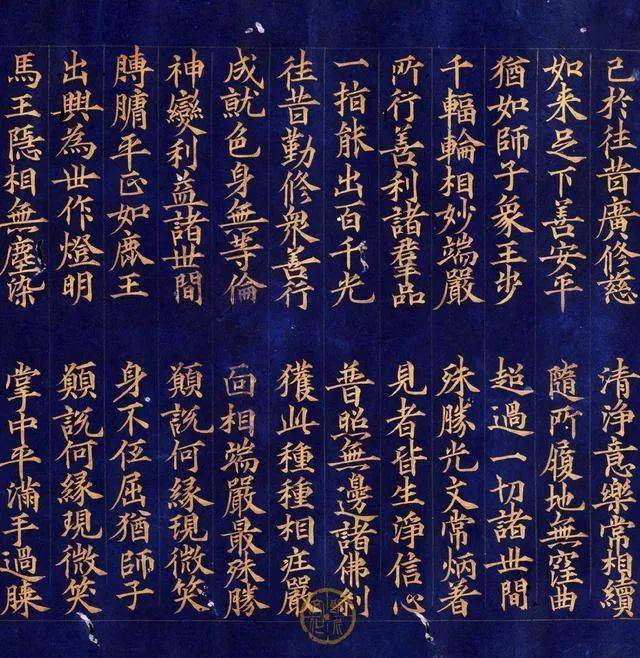 已於往昔廣修慈　清淨意樂常相續
如来足下善安平　隨所履地無窪曲
猶如師子象王步　超過一切諸世間
千輻輪相妙端嚴　殊勝光文常炳著
所行善利諸羣品　見者皆生淨信心
一指能出百千光　普照無邊諸佛刹
往昔勤修衆善行　獲此種種相莊嚴
成就色身無等倫　面相端嚴最殊勝
神變利益諸世間　願說何縁現微笑
膊𦟛平正如鹿王　身不伛屈猶師子
出興為世作燈明　願說何縁現微笑
馬王隱相無塵染　掌中平滿手過膝